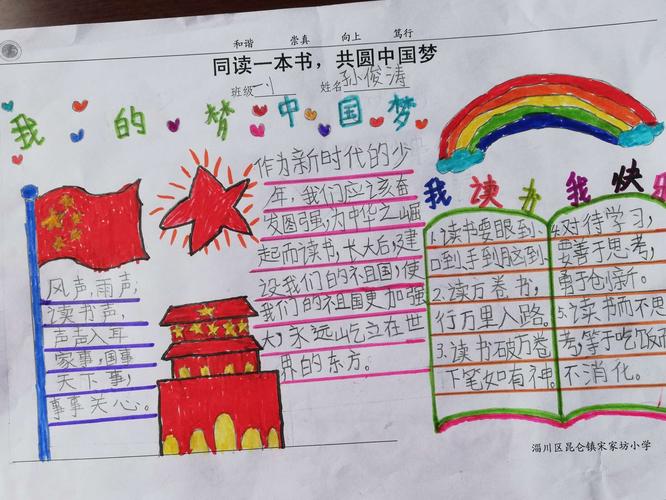 和谐 崇真 向上 笃行
同读一本书，共圆中国梦
班级 一1 姓名 孙俊涛
我的梦中国梦
作为新时代的少
年，我们应该奋
发图强，为中华之崛
起而读书，长大后建
设我们的祖国，使
我们的祖国更加强
大，永远屹立在世
界的东方。
风声，雨声，
读书声，
声声入耳
家事，国事
天下事，
事事关心。
我读办我快乐
1.读书要眼到、
口到手到脑到
2.读万卷书，
行万里入路。
3.读书破万卷
下笔如有神。
4.对待学习，
要善于思考，
勇于创新。
5.读书而不思
考，等于吃饭而
不消化。
淄川区昆仑镇宋家坊小学